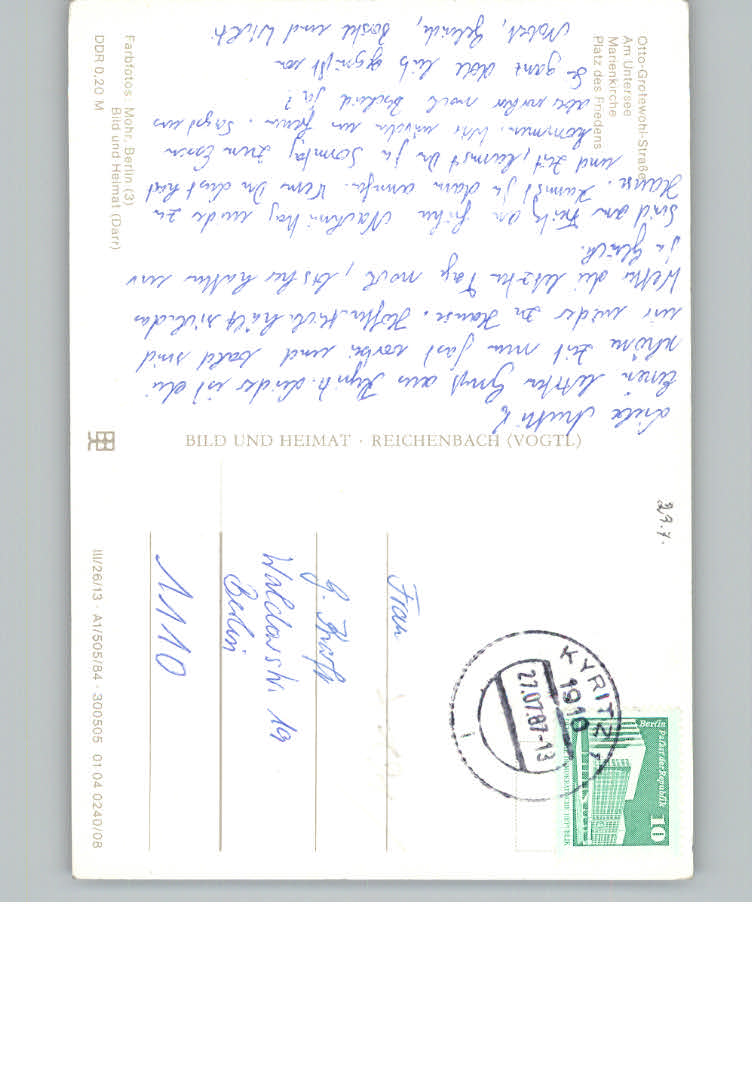 Otto-Grotewohl-Straße
Am Untersee
Marienkirche
Platz des Friedens
Liebe Mutti
Einen letzten Gruß aus Kyritz. Leider ist die
schöne Zeit nun fast vorbei und bald sind
wir wieder zu Hause. Hoffentlich hält sich das
Wetter die letzten Tage noch, bisher hatten wir
ja Glück.
Sind am Freitag am frühen Nachmittag wieder zu
Hause. Kannst ja dann anrufen. Wenn Du Lust hast
und Zeit, kannst Du ja Sonntag zum Essen
kommen. Wir würden uns freuen. Sagst uns
aber vorher noch Bescheid ja?
Sei ganz doll lieb gegrüßt von
und
Farbfotos: Mohr, Berlin (3)
Bild und Heimat (Darr)
DDR 0,20 M
BILD UND HEIMAT · REICHENBACH (VOGTL)
III/26/13 · A1/505/84 · 300505 01 04 0240/08
23.7.
Frau
G.
Waldowstr. 19
Berlin
1110
KYRITZ 1
1910
27.07.87-13
Berlin
Palast der Republik
10
DEUTSCHE DEMOKRATISCHE REPUBLIK